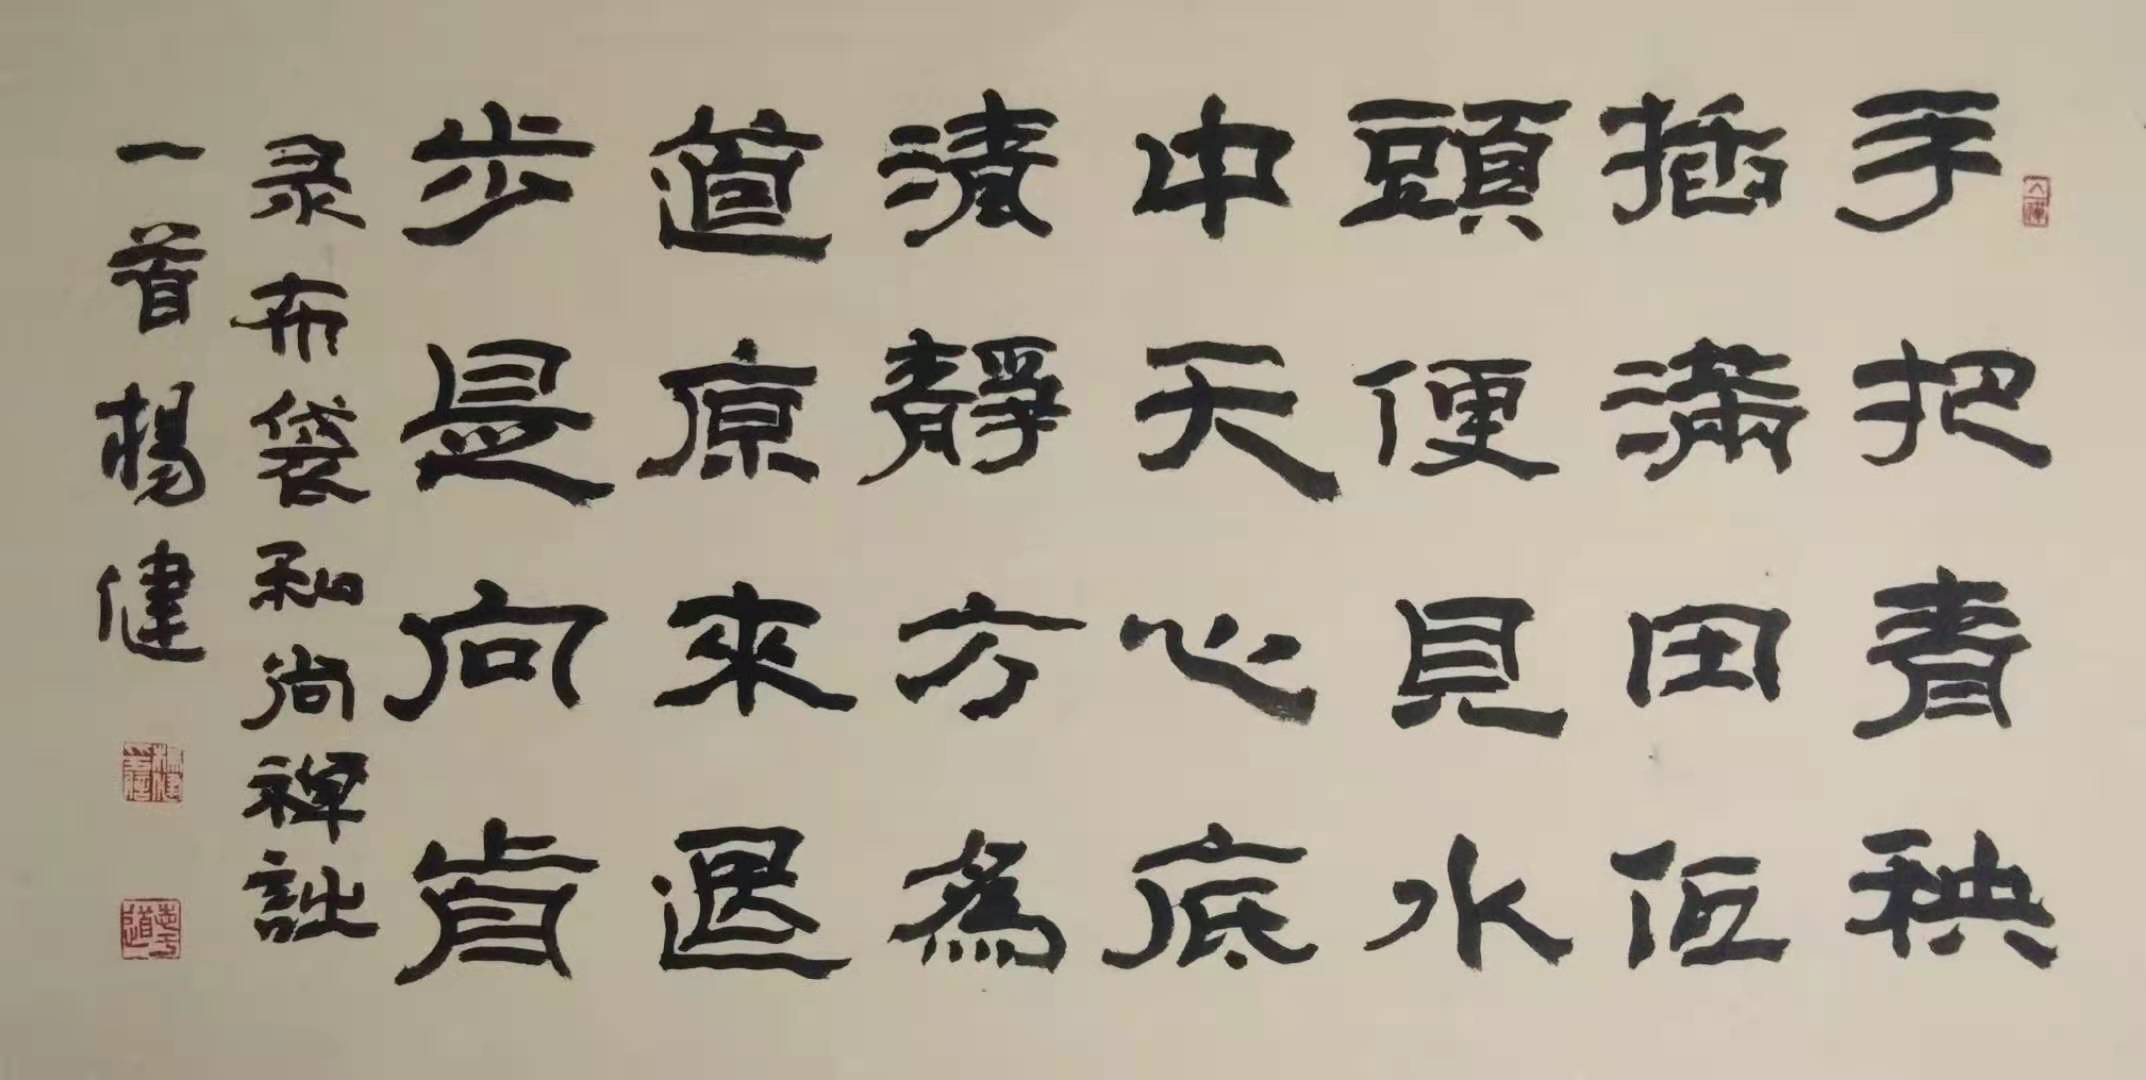 手把青秧
插滿田低
頭便見水
中天心底
清靜方為
道原來退
步是向前
录布袋和尚禪詩
一首楊健
志于道